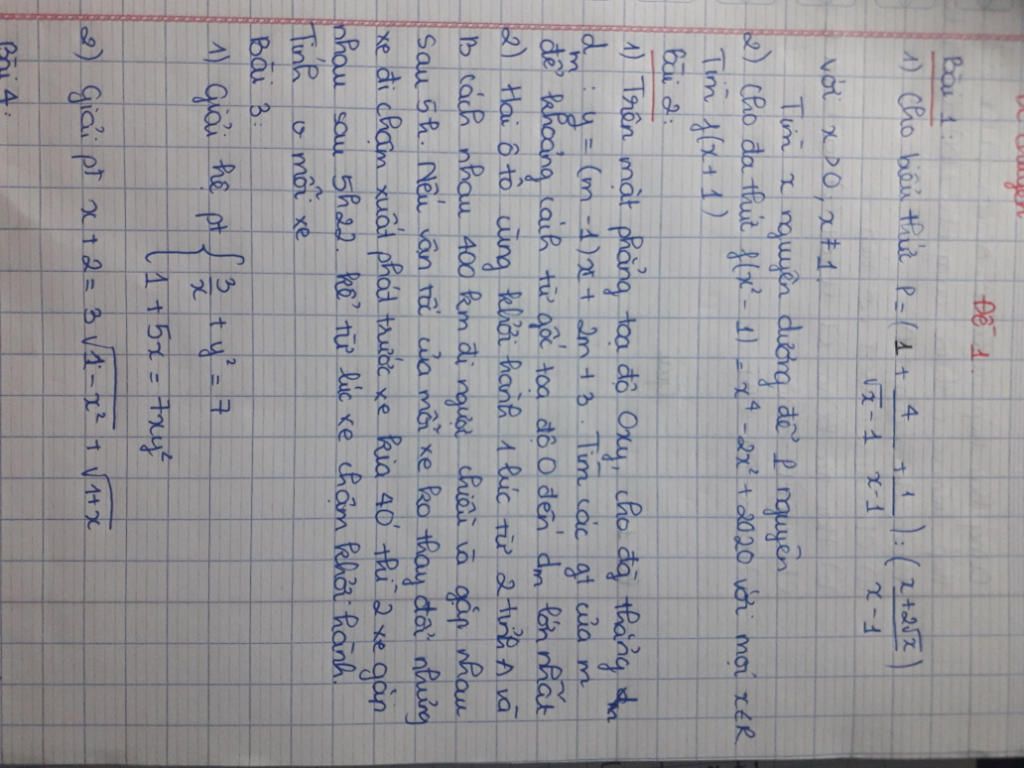 Đề 1.
Bài 1:
1) Cho biểu thức P = (1 + 4/(√x - 1) + 1/(x-1)) : ((x+2√x)/(x-1))
với x > 0, x ≠ 1.
Tìm x nguyên dương để P nguyên
2) Cho đa thức f(x² - 1) = x⁴ - 2x² + 2020 với mọi x ∈ R
Tìm f(x + 1)
bài 2:
1) Trên mặt phẳng tọa độ Oxy, cho đg thẳng dm
dm : y = (m - 1)x + 2m + 3. Tìm các gt của m
để khoảng cách từ gốc toạ độ O đến dm lớn nhất
2) Hai ô tô cùng khởi hành 1 lúc từ 2 tỉnh A và
B cách nhau 400 km đi ngược chiều và gặp nhau
sau 5h. Nếu vận tốc của mỗi xe ko thay đổi nhưng
xe đi chậm xuất phát trước xe kia 40' thì 2 xe gặp
nhau sau 5h22. kể từ lúc xe chậm khởi hành.
Tính v mỗi xe
Bài 3:
1) Giải hệ pt { 3/x + y² = 7
{ 1 + 5x = 7xy²
2) Giải pt x + 2 = 3√(1 - x²) + √(1+x)
Bài 4: